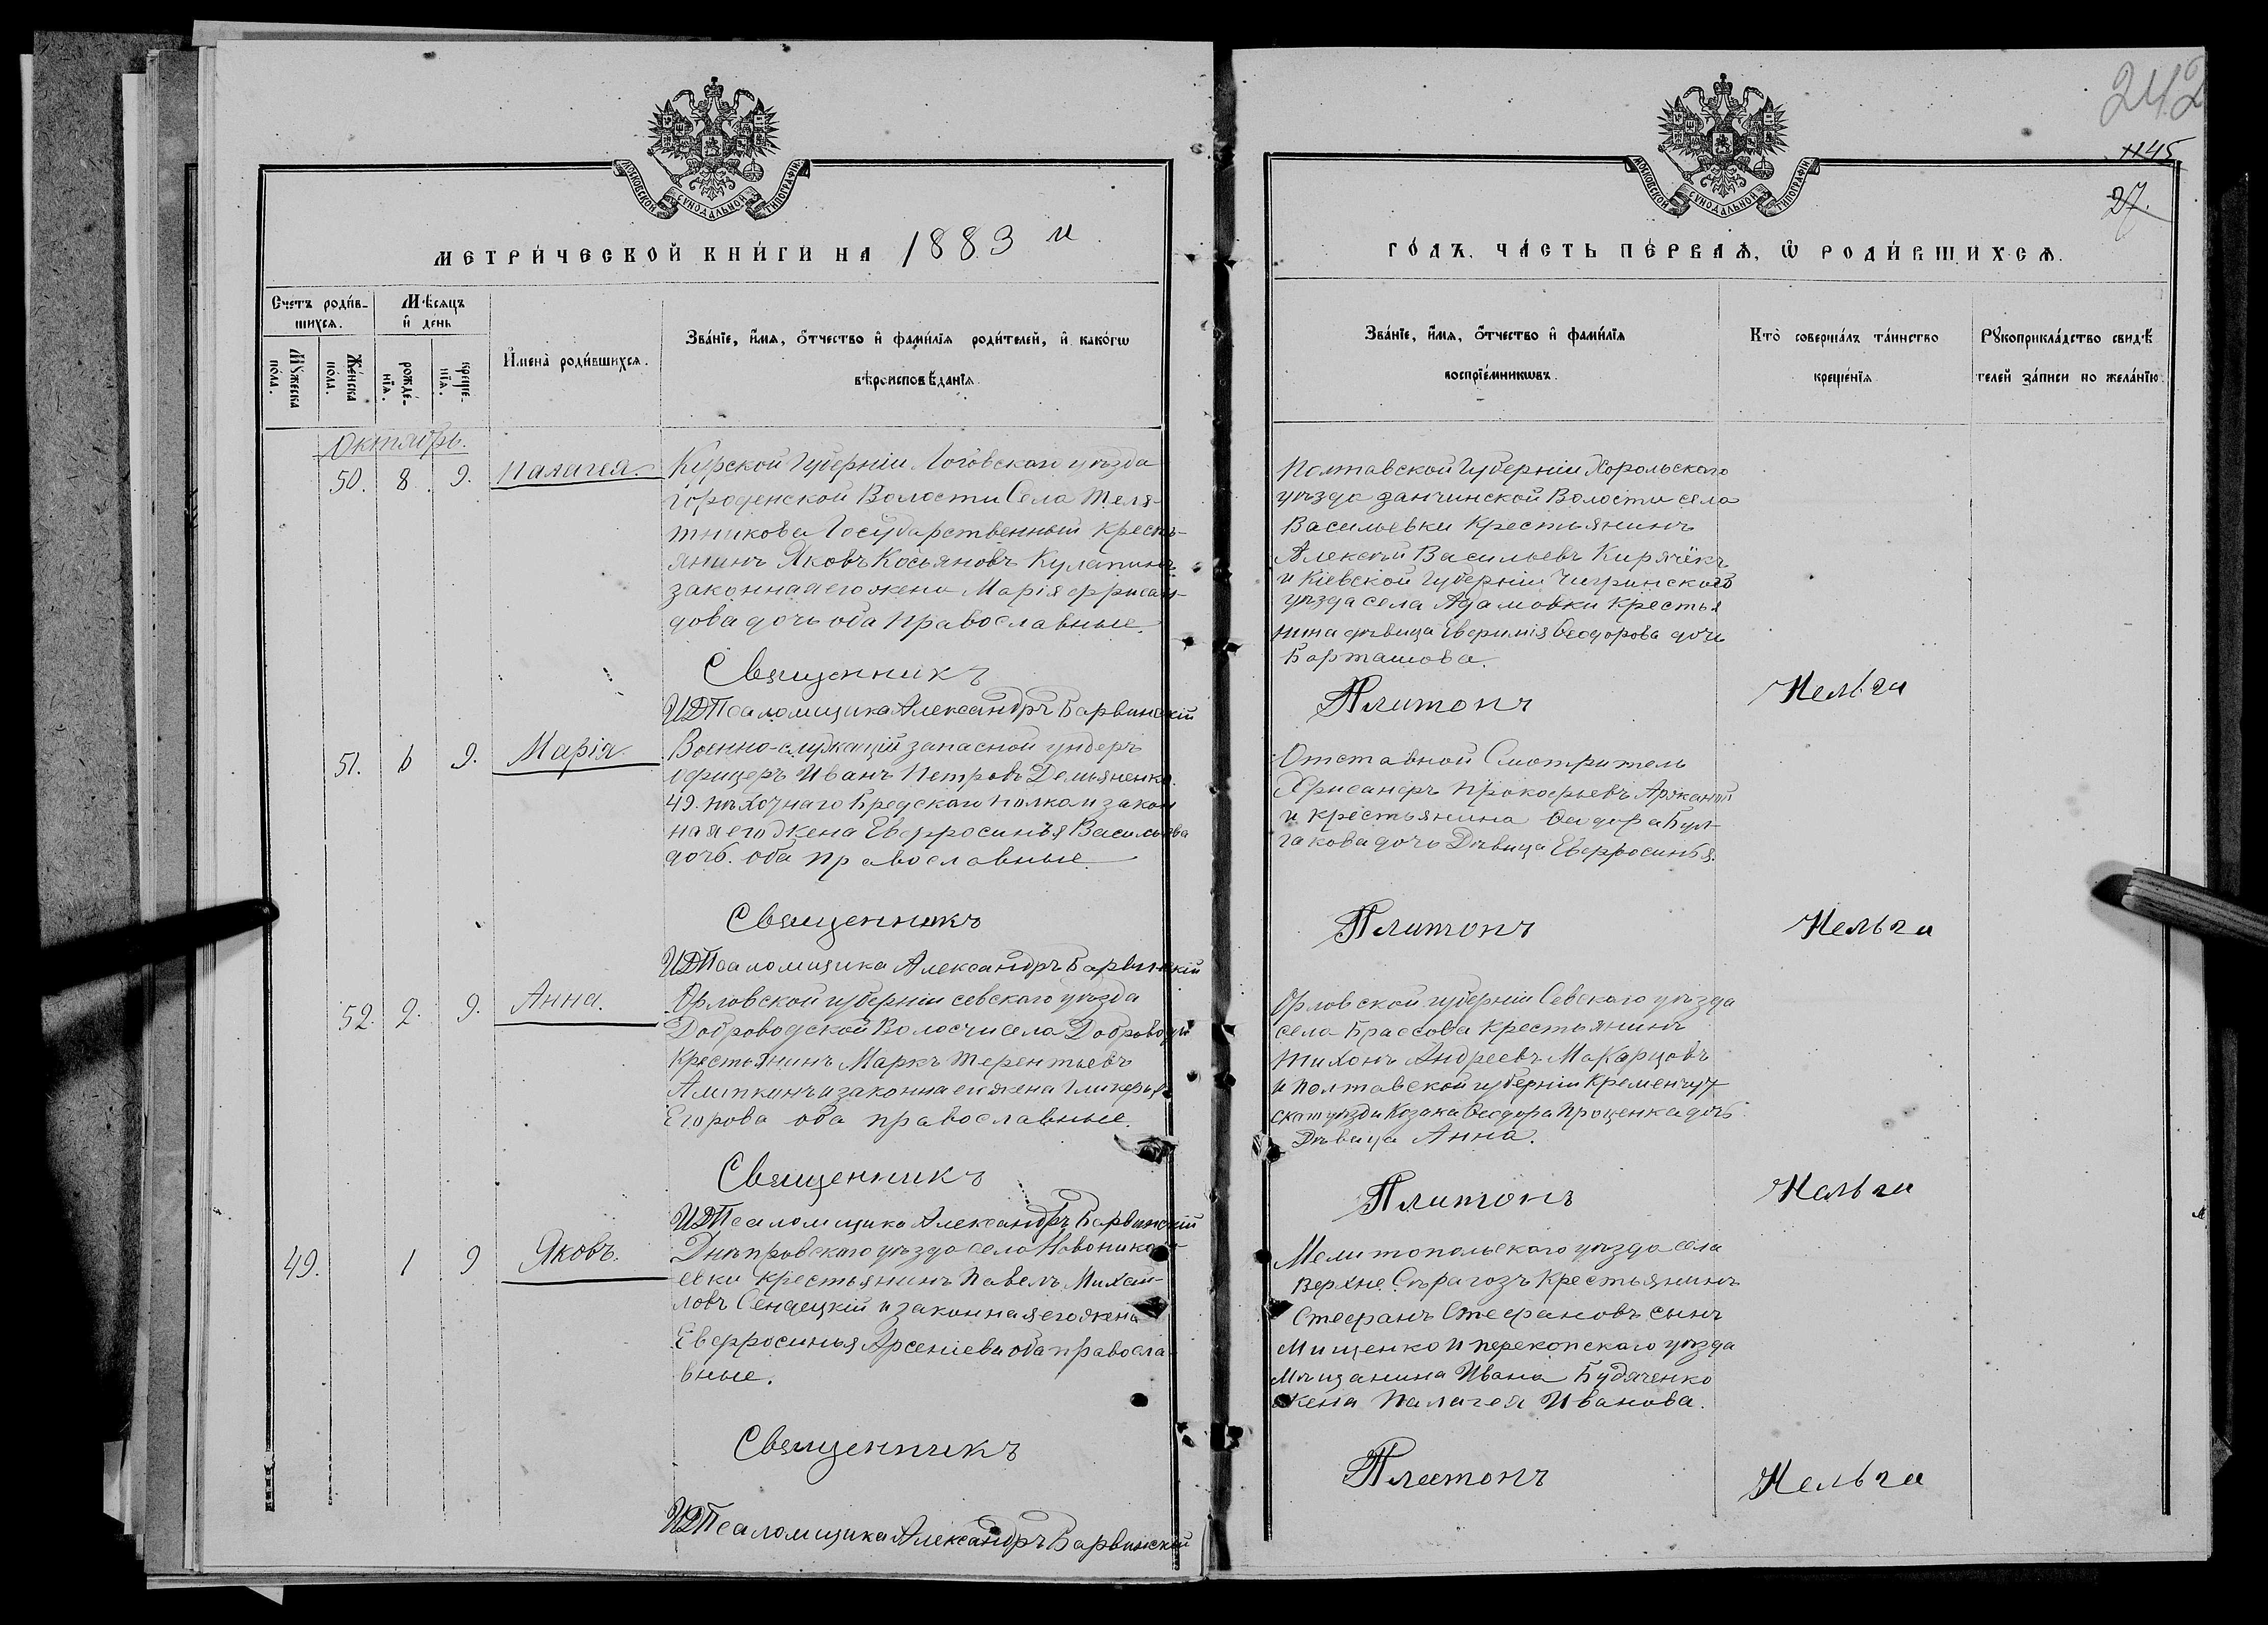 МОСКОВСКОЙ СѴНОДАЛЬНОЙ ТИПОГРАФІИ
МЕТРИ́ЧЕСКОЙ КНИ́ГИ НА 1883 й
Счетъ роди́в-
шихсѧ.
Мѣсѧцъ
и҆ де́нь
Мꙋжеска
по́ла.
Же́нска
по́ла.
рожде́-
нїѧ.
креще-
нїѧ.
И҆мена̀ роди́вшихсѧ.
Зва́нїе, и҆́мѧ, ѻ҆́тчество и҆ фами́лїѧ роди́телей, и҆ како́гѡ
вѣроисповѣ́данїѧ.
Октябрь.
50. 8. 9. Палагея.
Курской Губерніи Логовскаго уѣзда
Городенской Волости Села Теля-
тникова Государственный кресть-
янинъ Яковъ Косьяновъ Кулапинъ
законная его жена Марія Фрисан-
дова дочь оба Православные.
Священникъ
ИД Псаломщика Александръ Барвинскій
51. 6 9. Марія
Военно-служащій запасной ундеръ
офицеръ Иванъ Петровъ Демьяненко
49. пѣхотнаго Бредскаго полка и закон
ная его жена Евфросинья Васильева
дочь. оба православные
Священникъ
ИД Псаломщика Александръ Барвинскій
52. 2. 9. Анна.
Орловской губерніи севскаго уѣзда
Доброводской Волости села Доброводъ
Крестьянинъ Маркъ Терентьевъ
Алипкинъ и законна его жена Гликерья
Егорова оба православные.
Священникъ
ИД Псаломщика Александръ Барвинскій
49. 1 9 Яковъ.
Днѣпровскаго уѣзда село Новоникола-
евки крестьянинъ Павелъ Михай-
ловъ Сендецкій и законная его жена
Евфросинья Арсеніева оба правосла-
вные.
Священникъ
ИД Псаломщика Александръ Барвинскій
242
1145
27.
МОСКОВСКОЙ СѴНОДАЛЬНОЙ ТИПОГРАФІИ
ГО́ДЪ, ЧА́СТЬ ПЕ́РВАѦ, Ѡ҆ РОДИ́ВШИХСѦ.
Зва́нїе, и҆́мѧ, ѻ҆́тчество и҆ фами́лїѧ
воспрїе́мникѡвъ.
Кто̀ соверша́лъ та́инство
креще́нїѧ
Рꙋкоприкла́дство свидѣ́
телей за́писи по жела́нїю
Полтавской Губерніи Хорольскаго
уѣзда занчинской Волости села
Васильевки Крестьянинъ
Алексѣй Васильевъ Кирячёкъ
и Кіевской Губерніи Чигринскаго
уѣзда села Адамовки крестья
нина дѣвица Евфимія Ѳеодорова дочь
Барташова.
Платонъ Нельга
Отставной Смотритель
Хрисанфъ Прокофьевъ Аржаной
и крестьянина Ѳеодора Бул-
гакова дочь Дѣвица Евфросинья.
Платонъ Нельга
Орловской губерніи Севскаго уѣзда
села Брасова крестьянинъ
Тихонъ Андреевъ Макарцовъ
и полтавской губерніи Кременчуг-
скаго уѣзда Козака Ѳеодора Проценка дочь
Дѣвица Анна.
Платонъ Нельга
Мелитопольскаго уѣзда села
Верхне Сѣрагозъ Крестьянинъ
Стефанъ Стефановъ сынъ
Мищенко и перекопскаго уѣзда
мѣщанина Ивана Будяченко
жена Палагея Иванова.
Платонъ Нельга